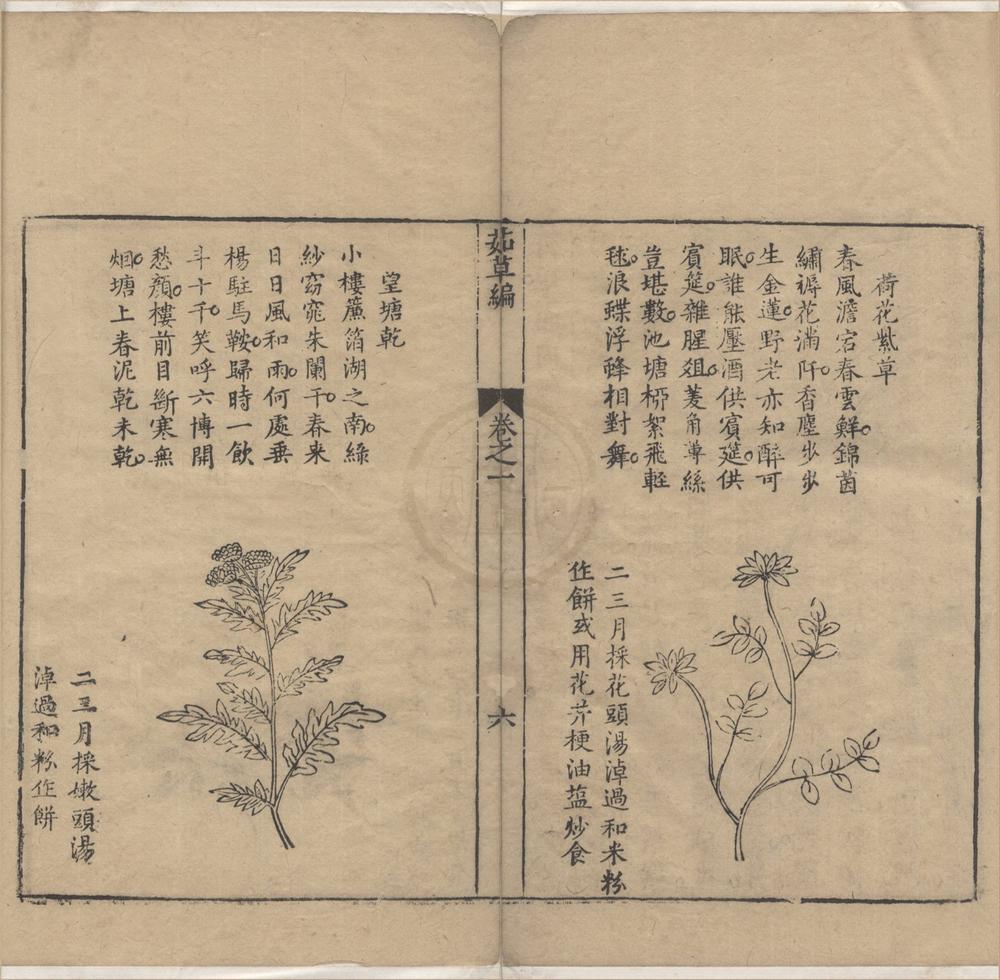 荷花紫草
春風澹宕春雲鮮錦茵
繡褥花滿阡香塵步步
生金蓮野老亦知醉可
眠誰能壓酒供賓筵供
賓筵雜腥俎菱角蓴絲
豈堪數池塘柳絮飛輕
毬浪蝶浮蜂相對舞
二三月採花頭湯淖過和米粉
作餅或用花芥梗油塩炒食
茹草編
卷之一
六
望塘乾
小樓簾箔湖之南綠
紗窈窕朱闌干春来
日日風和雨何處垂
楊駐馬鞍歸時一飲
斗十千笑呼六博開
愁顏樓前目斷寒無
烟塘上春泥乾未乾
二三月採嫩頭湯
淖過和粉作餅